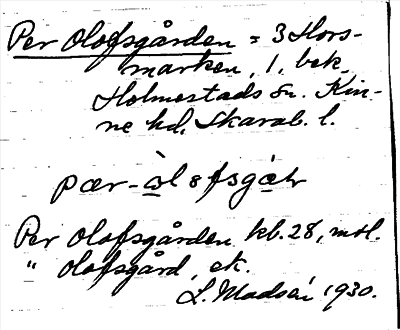 Per Olofsgården = 3 Hors-
marken, 1, bek.
Holmestads sn. Kin-
ne hd, Skarab. l.
pær-
Per Olofsgården kb. 28, mtl.
" Olofsgård, ek.
L. Madsén, 1930.